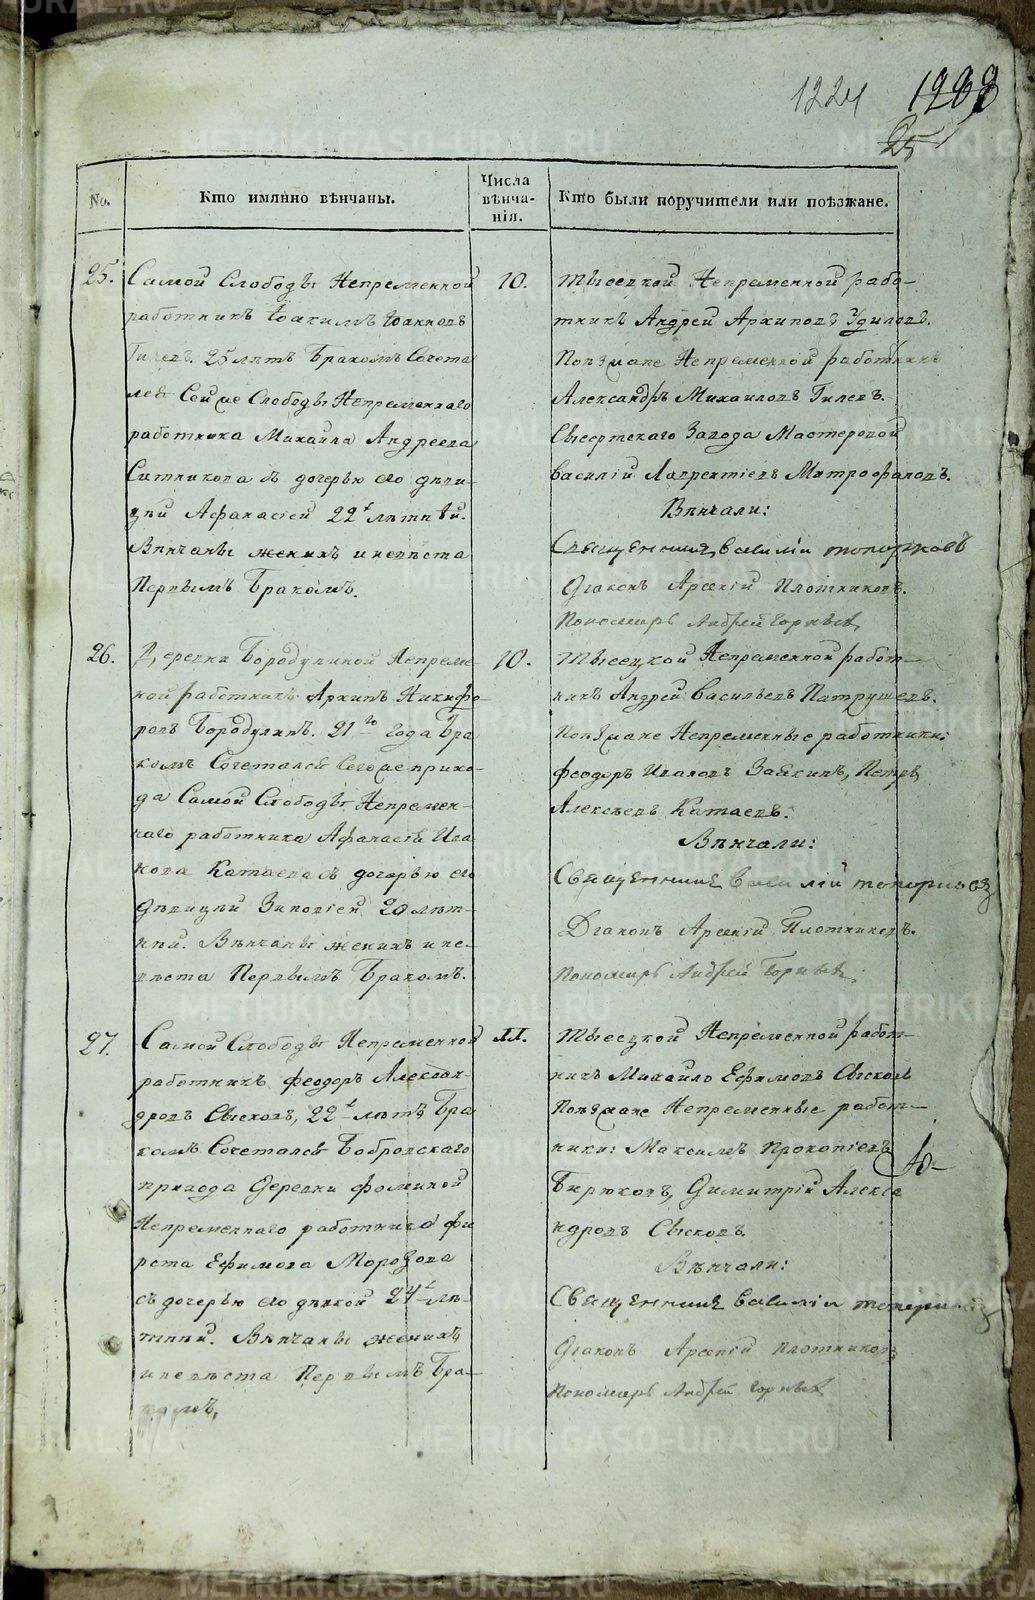 1224 1293
25
No.
Кто имянно вѣнчаны.
Числа вѣнча-нія.
Кто были поручители или поѣзжане.
25.
Самой Слободы Непременной
работникъ Іоакимъ Іоанновъ
Гилевъ. 25 лѣтъ Бракомъ Сочета
лся Сей же Слободы Непременнаго
работника Михаила Андреева
Ситникова съ дочерью его дѣви-
цей Афанасіей 22х лѣтней.
Вѣнчаны женихъ и невѣста
Первымъ Бракомъ.
10.
Тысецкой Непременной рабо-
тникъ Андрей Архиповъ Удиловъ.
Поѣзжане Непременной работникъ
Александръ Михаиловъ Гилевъ.
Сысертскаго Завода Мастеровой
Василій Лаврентіевъ Митрофановъ.
Вѣнчали:
Священникъ Василій Топорковъ
Діаконъ Арсеній Плотниковъ.
Пономарь Андрей
26.
Деревни Бородулиной Непреме-
ной работникъ Архипъ Никифо
ровъ Бородулинъ. 21го года Бра
комъ Сочетался Сего же прихо-
да Самой Слободы Непремен-
наго работника Афанасія Ива
нова Катаева съ дочерью его
дѣвицей Зиновіей 20 лѣт-
ней. Вѣнчаны женихъ и не-
вѣста Первымъ Бракомъ.
10.
Тысецкой Непременной работ-
никъ Андрей Васильевъ Патрушевъ.
Поѣзжане Непременные работники:
Феодоръ Ивановъ Заякинъ, Петръ
Алексѣевъ Катаевъ.
Вѣнчали:
Священникъ Василій Топорковъ
Діаконъ Арсеній Плотниковъ.
Пономарь Андрей
27.
Самой Слободы Непременной
работникъ Феодоръ Алексан-
дровъ Сысковъ, 22х лѣтъ Бра
комъ Сочетался Бобровскаго
прихода Деревни Фоминой
Непременнаго работника Фи
рста Ефимова Морозова
съ дочерью его дѣвкой 24х лѣ-
тней. Вѣнчаны женихъ
и невѣста Первымъ Бра-
комъ.
11.
Тысецкой Непременной работ-
никъ Михайло Ефимовъ Сысковъ
Поѣзжане Непременные работ-
ники: Максимъ Прокопіевъ
Бирюковъ, Димитрій Алекса
ндровъ Сысковъ.
Вѣнчали:
Священникъ Василій Топорковъ
Діаконъ Арсеній Плотниковъ
Пономарь Андрей
METRIKI.GASO-URAL.RU